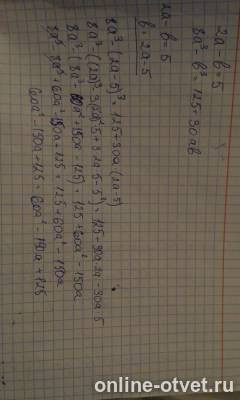 2a - b = 5
8a³ - b³ = 125 + 30ab
2a - b = 5
b = 2a - 5
8a³ - (2a - 5)³ = 125 + 30a (2a - 5)
8a³ - ((2a)³ - 3(2a)²5 + 3·2a·5² - 5³) = 125 + 30a·2a - 30a·5
8a³ - (8a³ - 60a² + 150a - 125) = 125 + 60a² - 150a
8a³ - 8a³ + 60a² - 150a + 125 = 125 + 60a² - 150a
60a² - 150a + 125 = 60a² - 150a + 125
online-otvet.ru